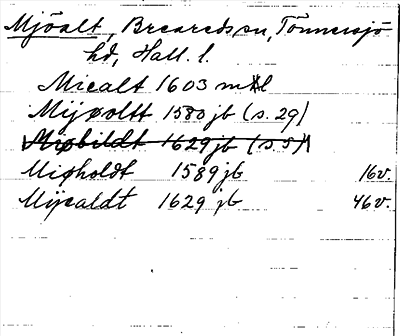 Mjöalt, Breareds sn, Tönnersjö
hd, Hall. l.
Miealt 1603 mtl
Mijøoltt 1580 jb (s. 29)
Miøbildt 1629 jb (s. 5)
Miøholdt 1589 jb 16v.
Mijealdt 1629 jb 46v.